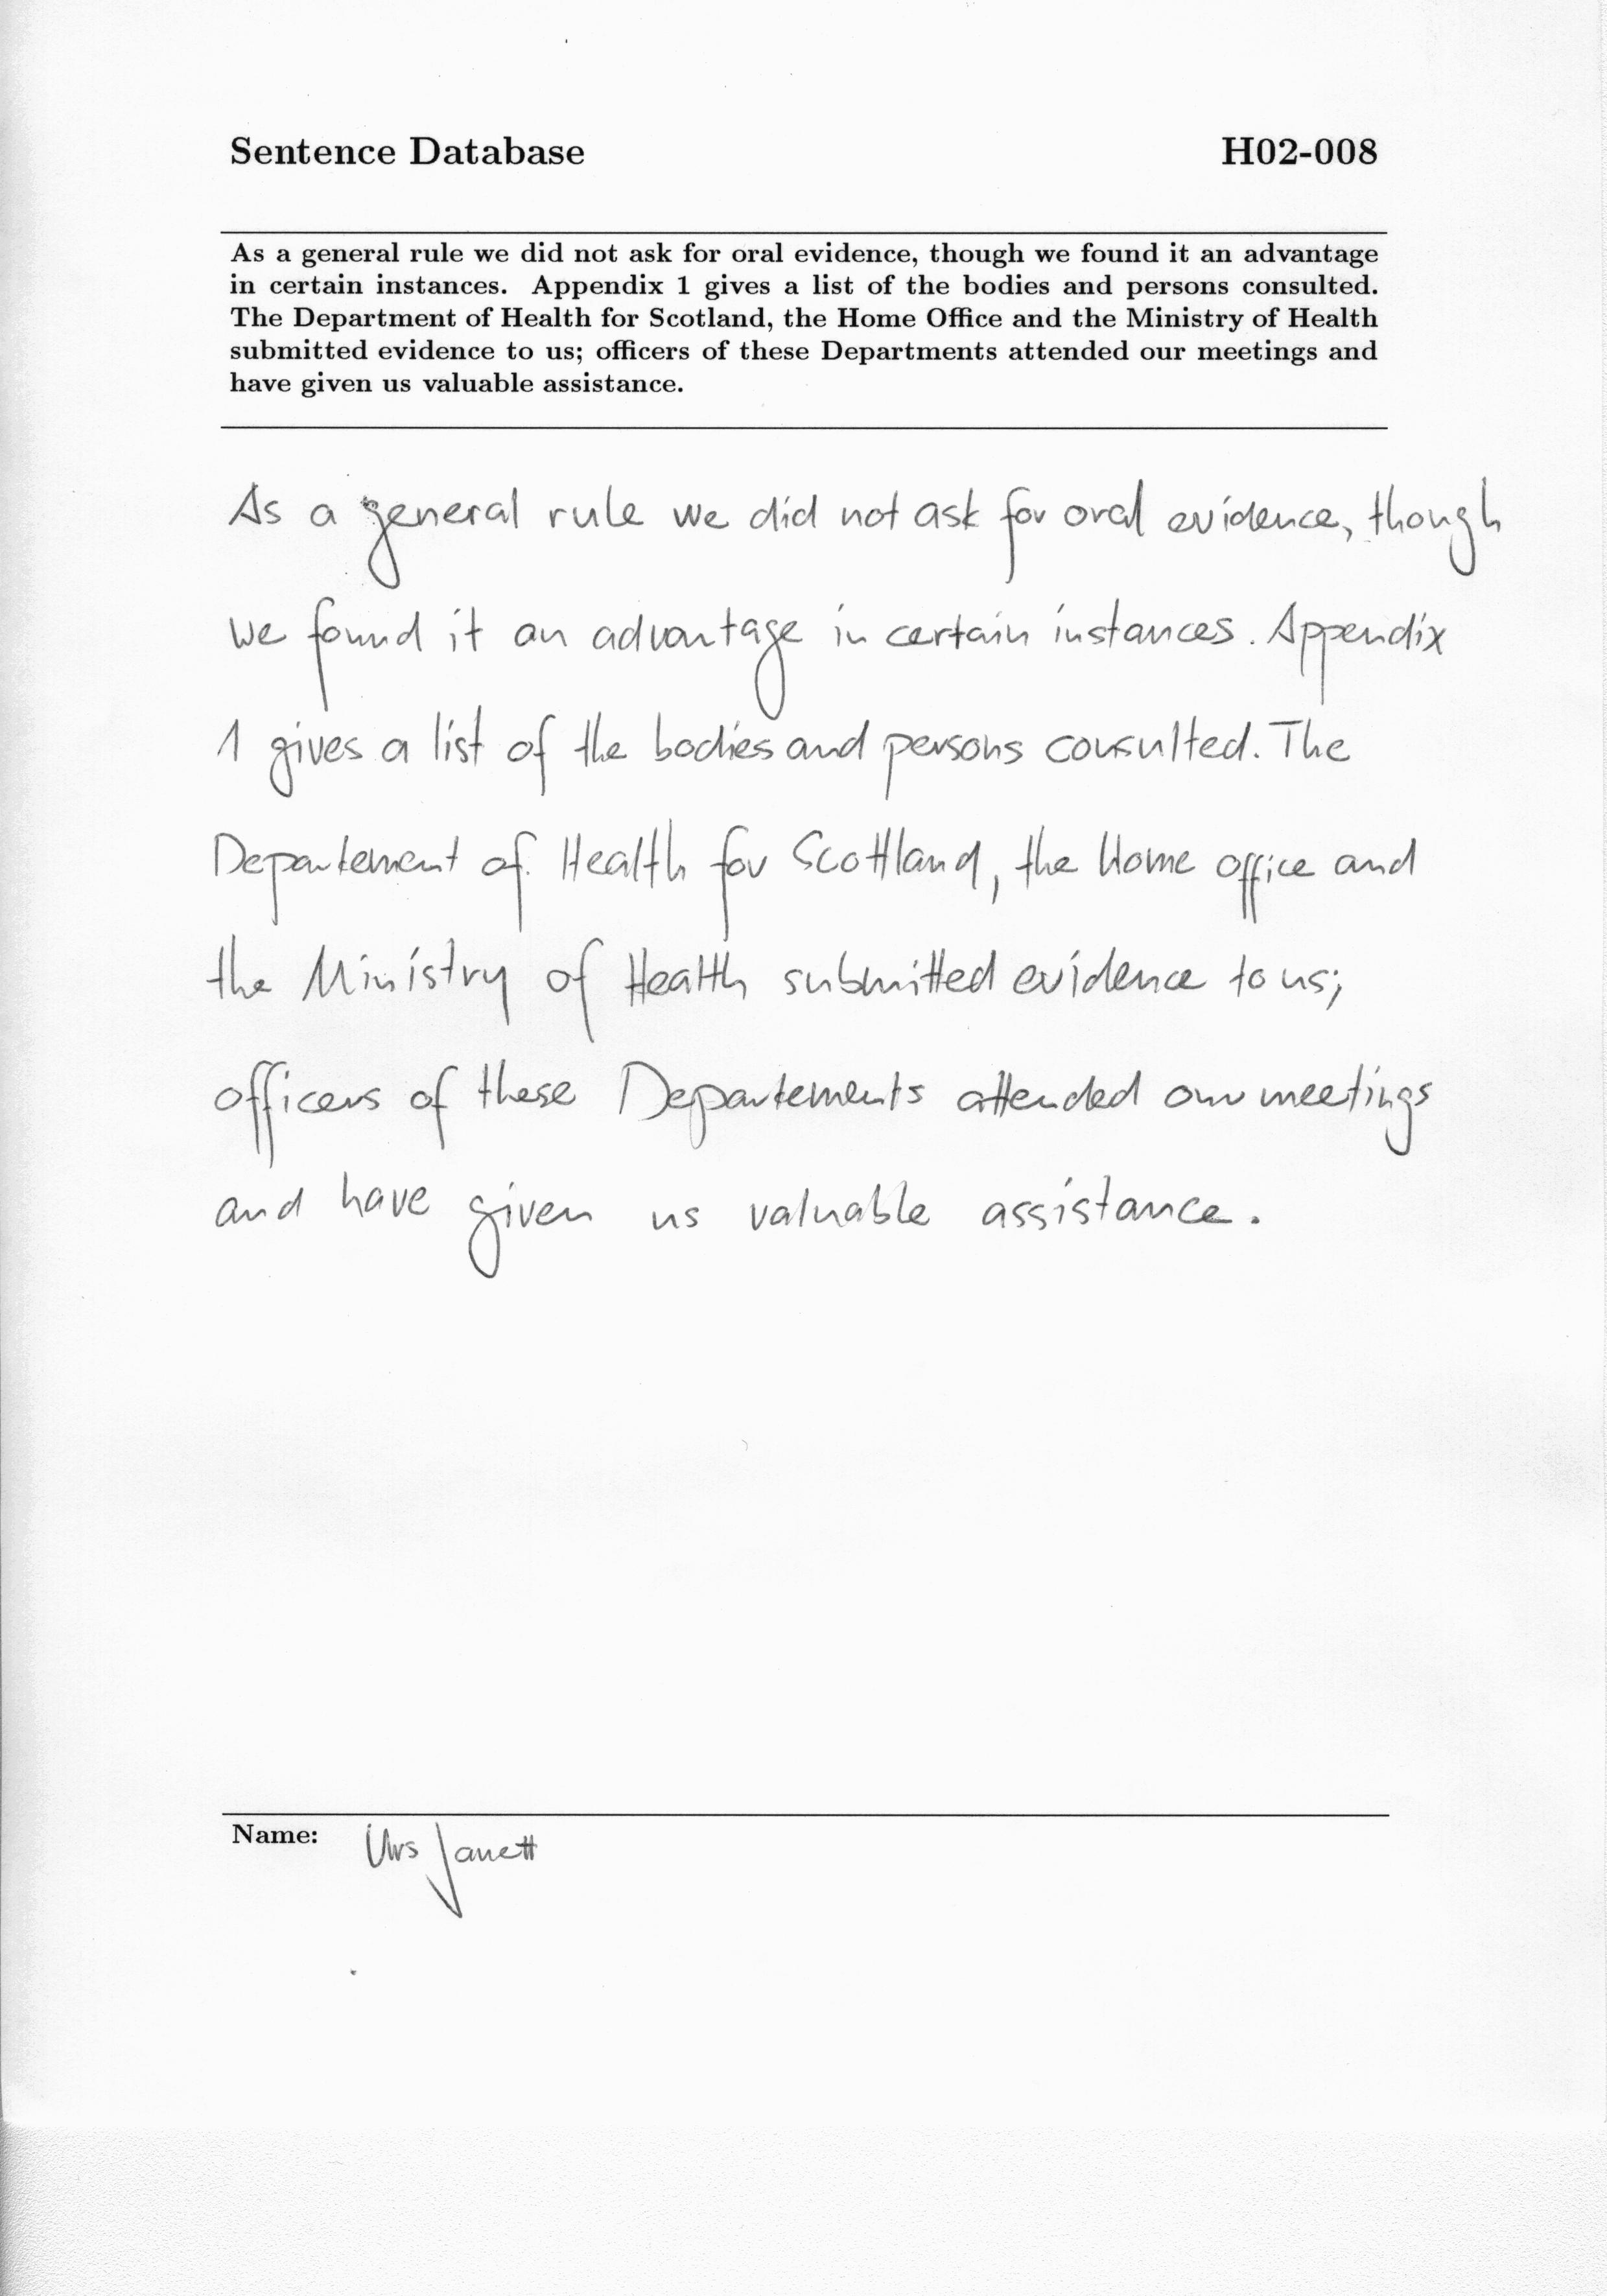 Sentence Database H02-008
As a general rule we did not ask for oral evidence, though we found it an advantage
in certain instances. Appendix 1 gives a list of the bodies and persons consulted.
The Department of Health for Scotland, the Home Office and the Ministry of Health
submitted evidence to us; officers of these Departments attended our meetings and
have given us valuable assistance.
As a general rule we did not ask for oral evidence, though
we found it an advantage in certain instances. Appendix
1 gives a list of the bodies and persons consulted. The
Departement of Health for Scotland, the Home office and
the Ministry of Health submitted evidence to us;
officers of these Departements attended our meetings
and have given us valuable assistance.
Name: Urs Janett